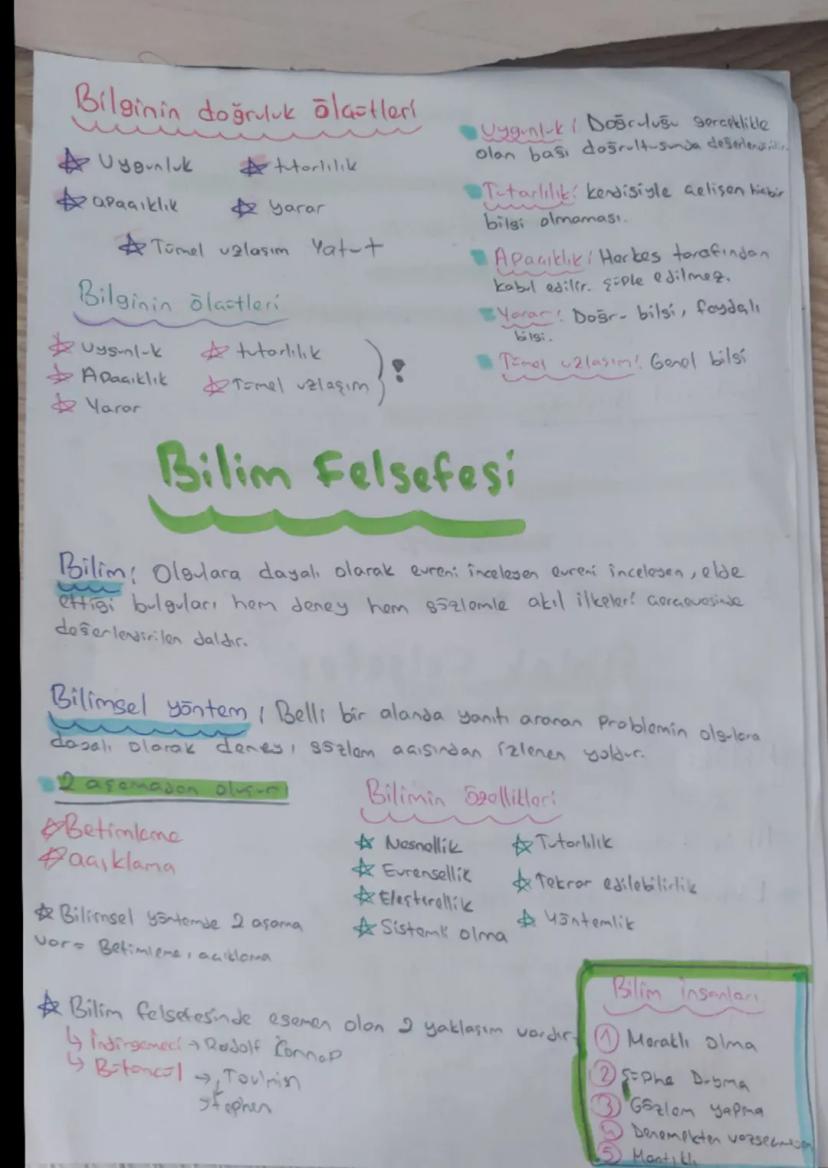 Bilginin doğruluk ölçütleri
☆ Uygunluk ☆ tutarlılık
☆ apaçıklık ☆ yarar
☆ Tümel uzlaşım Yatut
Bilginin ölçütleri
☆ uygunluk ☆ tutarlılık
☆ Apaçıklık ☆ Tümel uzlaşım
☆ Yarar
Uygunluk: Doğruluğu gerçeklikle
olan bağı doğrultusunda değerlendirilir.
Tutarlılık: kendisiyle çelişen hiçbir
bilgi olmaması.
Apaçıklık: Herkes tarafından
kabul edilir. şüphe edilmez.
Yarar: Doğru bilgi, faydalı
bilgi.
Tümel uzlaşım: Genel bilgi
Bilim Felsefesi
Bilim: Olgulara dayalı olarak evreni inceleyen evreni inceleyen, elde
ettiği bulguları hem deney hem gözlemle akıl ilkeleri çerçevesinde
değerlendirilen daldır.
Bilimsel yöntem: Belli bir alanda yanıtı aranan problemin olgulara
dayalı olarak deney, gözlem açısından izlenen yoldur.
2 aşamadan oluşur
☆ Betimleme
☆ açıklama
☆ Bilimsel yöntemde 2 aşama
var = Betimleme, açıklama
Bilimin özellikleri
☆ Nesnellik ☆ Tutarlılık
☆ Evrensellik ☆ Tekrar edilebilirlik
☆ Eleştirellik ☆ Yöntemlik
☆ Sistemli olma
☆ Bilim felsefesinde egemen olan 2 yaklaşım vardır
↳ İndirgemeci → Rudolf Carnap
↳ Bütüncül → Toulmin
→ Stephen
Bilim insanları
1 Meraklı olma
2 şüphe Duyma
3 Gözlem yapma
4 Denemekten vazgeçmeyen
5 Mantıklı